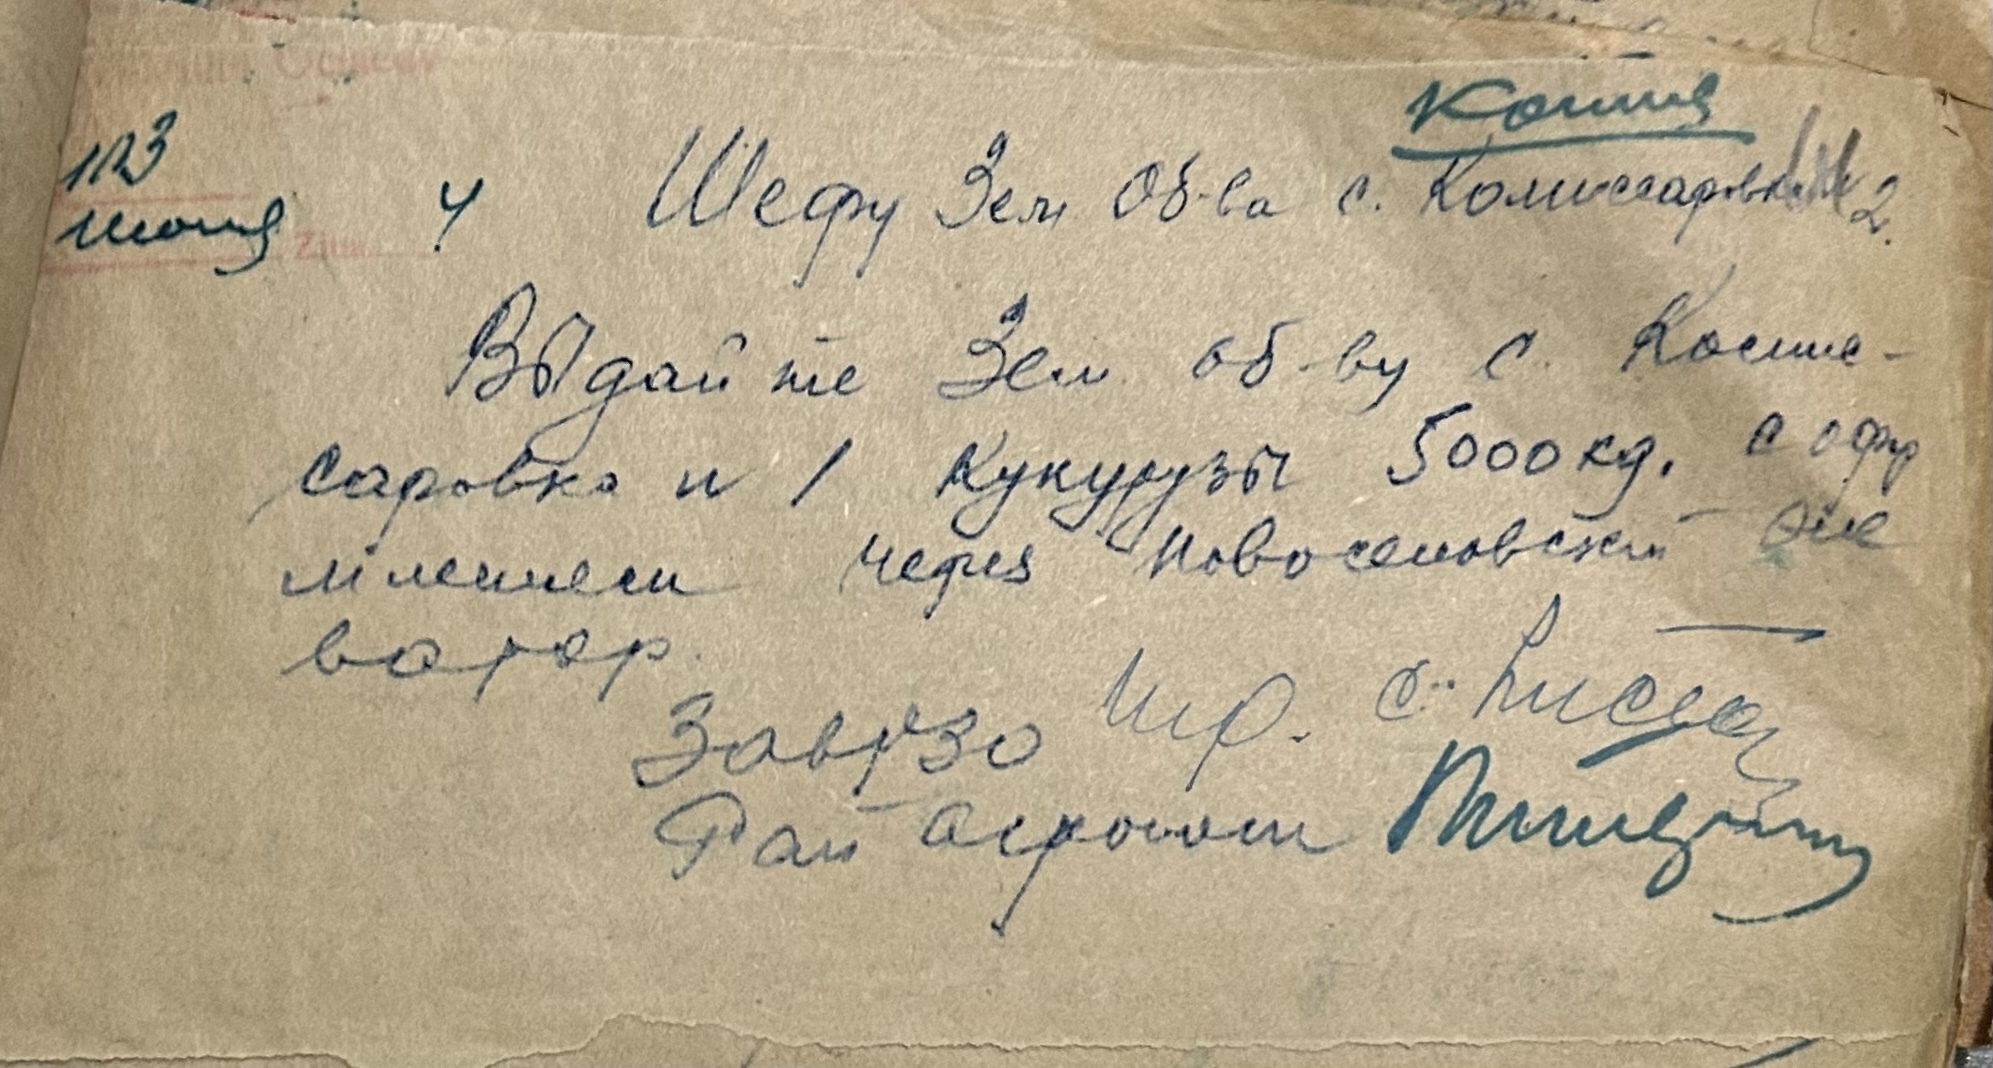 Копия
113
июня
4 Шефу Зем Об-ва с. Комиссаровка № 2.
Выдайте Зем об-ву с. Комис-
саровка № 1 кукурузы 5000 кг. с офор
млением через Новоселовский эле
ватор.
Зав РЗО
Рай агроном